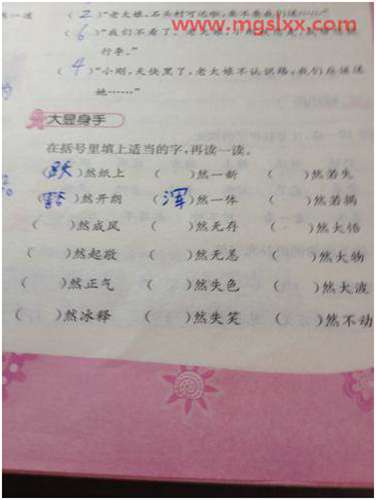 www.mgslxx.com
(2)"老大娘,石头村可远啦,要不要我们送
(6)"我们不看了。
行李。"
(4)"小刚,天快黑了,老大娘不认识路,我们应该送
她……"
大显身手
在括号里填上适当的字,再读一读。
(跃)然纸上 ( )然一新 ( )然若失
(豁)然开朗 (浑)然一体 ( )然若揭
( )然成风 ( )然无存 ( )然大悟
( )然起敬 ( )然无恙 ( )然大物
( )然正气 ( )然失色 ( )然大波
( )然冰释 ( )然失笑 ( )然不动